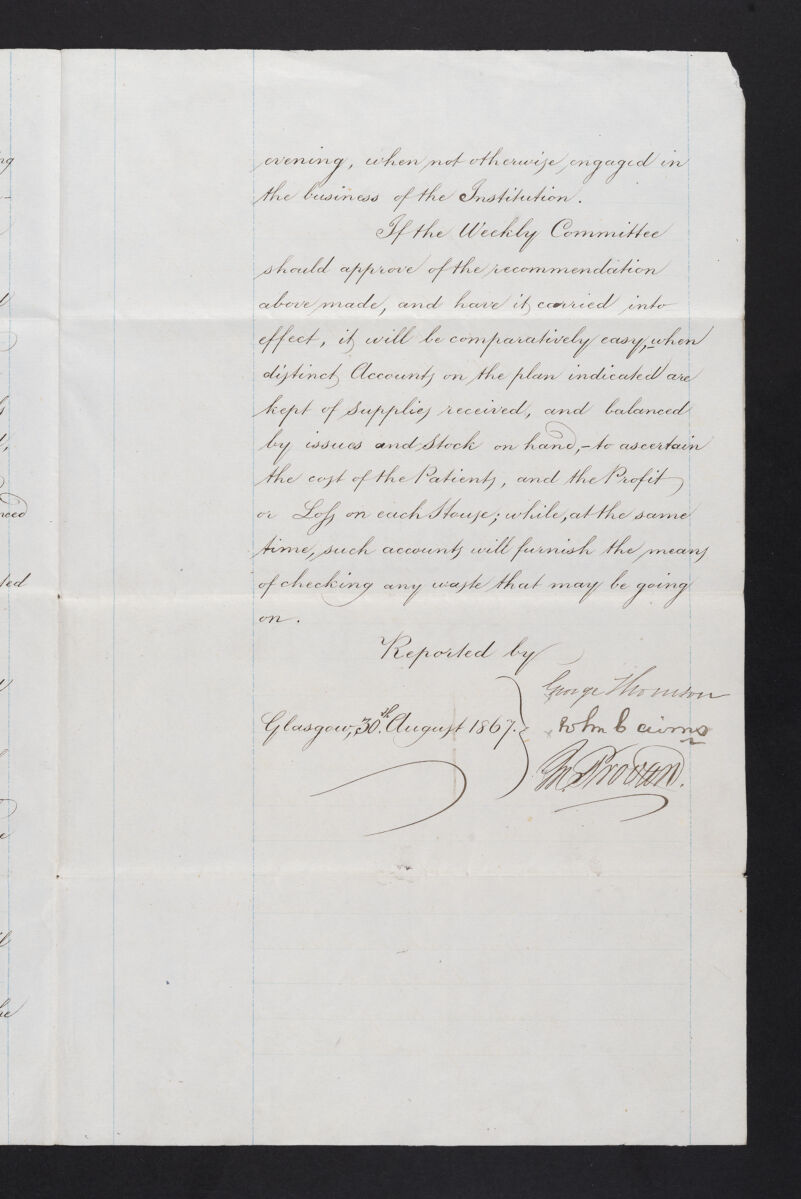 evening, when not otherwise engaged in
the business of the Institution.
If the Weekly Committee
should approve of the recommendation
above made, and have it carried into
effect, it will be comparatively easy, – when
distinct Accounts on the plan indicated are
kept of Supplies received, and balanced
by issues and Stock on hand, – to ascertain
the cost of the Patients, and the Profit
or Loss on each House; while, at the same
time, such accounts will furnish the means
of checking any waste that may be going
on.
Reported by
George Thomson
Glasgow, 30th August 1867.
John Cairns
Provan.